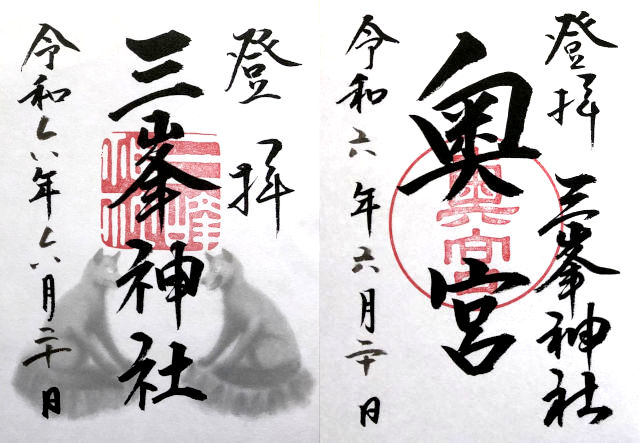 登拝
三峯神社
令和六年六月二十日
登拝
三峯神社
奥宮
令和六年六月二十日
奥宮